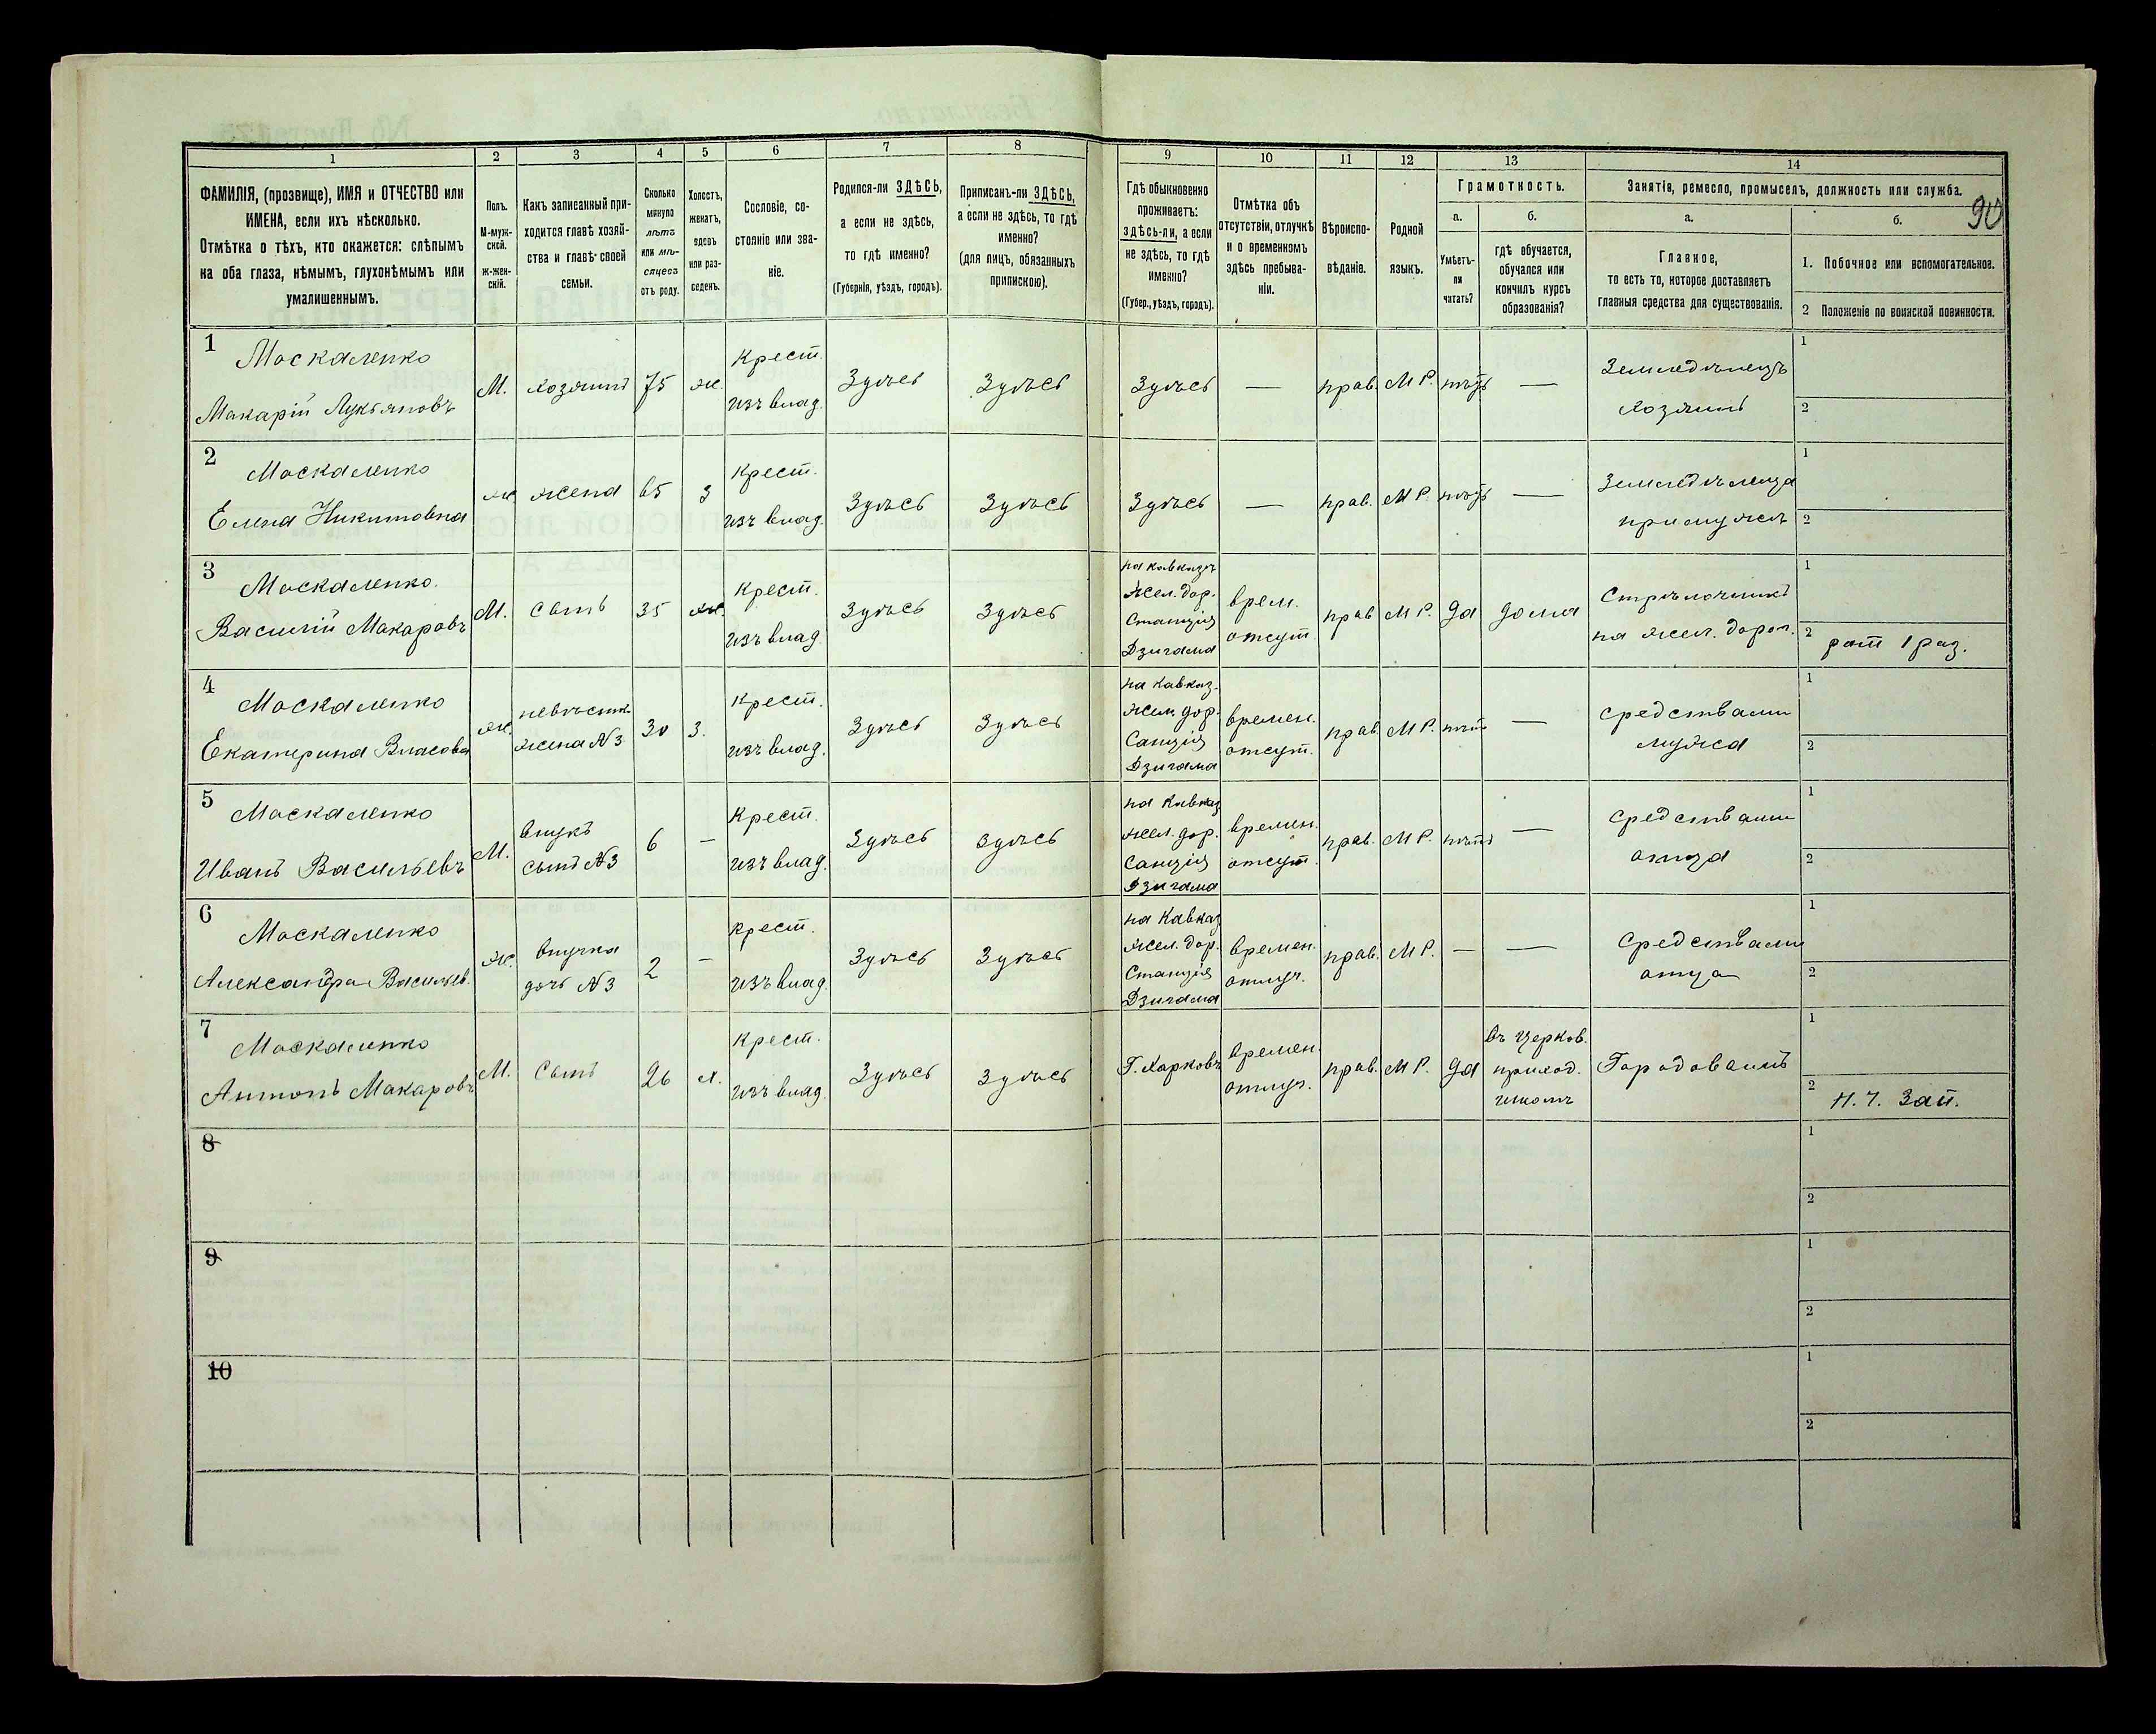 90
1 2 3 4 5 6 7 8 9 10 11 12 13 14
ФАМИЛІЯ, (прозвище), ИМЯ и ОТЧЕСТВО или
ИМЕНА, если ихъ нѣсколько.
Отмѣтка о тѣхъ, кто окажется: слѣпымъ
на оба глаза, нѣмымъ, глухонѣмымъ или
умалишеннымъ.
Полъ.
М-муж-
ской.
ж-жен-
скій.
Какъ записанный при-
ходится главѣ хозяй-
ства и главѣ своей
семьи.
Сколько
минуло
лѣтъ
или мѣ-
сяцевъ
отъ роду.
Холостъ,
женатъ,
вдовъ
или раз-
веденъ.
Сословіе, со-
стояніе или зва-
ніе.
Родился-ли ЗДѢСЬ,
а если не здѣсь,
то гдѣ именно?
(Губернія, уѣздъ, городъ).
Приписанъ-ли ЗДѢСЬ,
а если не здѣсь, то гдѣ
именно?
(для лицъ, обязанныхъ
припискою).
Гдѣ обыкновенно
проживаетъ:
здѣсь-ли, а если
не здѣсь, то гдѣ
именно?
(Губер., уѣздъ, городъ).
Отмѣтка объ
отсутствіи, отлучкѣ
и о временномъ
здѣсь пребыва-
ніи.
Вѣроиспо-
вѣданіе.
Родной
языкъ.
Грамотность.
а.
Умѣетъ-
ли
читать?
б.
гдѣ обучается,
обучался или
кончилъ курсъ
образованія?
Занятія, ремесло, промыселъ, должность или служба.
а.
Главное,
то есть то, которое доставляетъ
главныя средства для существованія.
б.
1. Побочное или вспомогательное.
2 Положеніе по воинской повинности.
1 Москаленко
Макарій Лукьяновъ
М. хозяинъ 75 ж.
Крест.
изъ влад.
Здѣсь Здѣсь Здѣсь — прав. М Р. нѣтъ —
Земледѣлецъ
хозяинъ
1
2
2 Москаленко
Елена Никитовна
ж жена 65 з
Крест.
изъ влад.
Здѣсь Здѣсь Здѣсь — прав. М Р. нѣтъ —
Земледѣлица
при мужѣ
1
2
3 Москаленко.
Василій Макаровъ
М. сынъ 35 ж.
Крест.
изъ влад.
Здѣсь Здѣсь
на кавказѣ
жел. дор.
Станція
Дзигама
врем.
отсут.
прав М Р. да дома
Стрѣлочникъ
на жел. дорог.
1
2 рат 1 раз.
4 Москаленко
Екатерина Власова
ж.
невѣстк
жена № 3
30 з.
Крест.
изъ влад.
Здѣсь Здѣсь
на Кавказ.
жел. дор.
Санція
Дзигама
времен.
отсут.
прав. М Р. нѣтъ —
средствами
мужа
1
2
5 Москаленко
Иванъ Васильевъ
М.
внукъ
сынъ № 3
6 —
Крест.
изъ влад.
Здѣсь здѣсь
на Кавказ
жел. дор.
Санція
Дзигама
времен.
отсут.
прав. М Р. нѣтъ —
средствами
отца
1
2
6 Москаленко
Александра Васильев.
ж.
внучка
дочь № 3
2 —
крест.
изъ влад.
Здѣсь Здѣсь
на Кавказ
жел. дор.
Станція
Дзигама
времен.
отлуч.
прав. М Р. — —
средствами
отца
1
2
7 Москаленко
Антонъ Макаровъ
М. Сынъ 26 х.
Крест.
изъ влад.
Здѣсь Здѣсь
Г. Харковъ
времен.
отлуч.
прав. М Р. да
въ Церков.
приход.
школѣ
Городовымъ
1
2 Н. Ч. Зап.
8
1
2
9
1
2
10
1
2